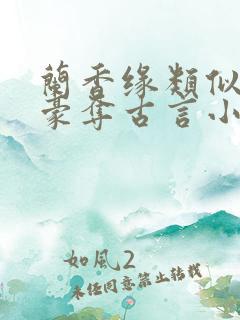 蘭香缘類似
豪奪古言小
如風2
未经同意禁止转载